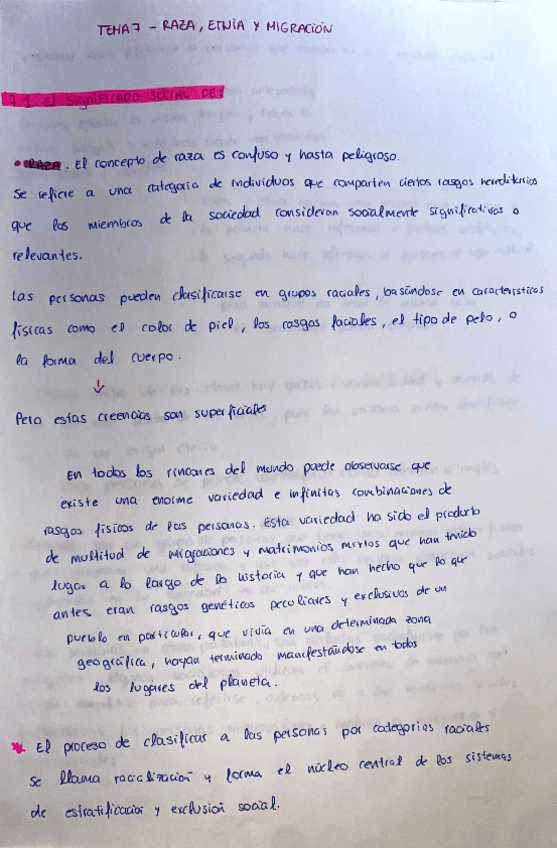 TEMA 7 - RAZA, ETNIA Y MIGRACIÓN
7.1. El SIGNIFICADO SOCIAL DE:
• RAZA. El concepto de raza es confuso y hasta peligroso.
Se refiere a una categoría de individuos que comparten ciertos rasgos hereditarios
que los miembros de la sociedad consideran socialmente significativos o
relevantes.
Las personas pueden clasificarse en grupos raciales, basándose en características
físicas como el color de piel, los rasgos faciales, el tipo de pelo, o
la forma del cuerpo.
↓
Pero estas creencias son superficiales
En todos los rincones del mundo puede observarse que
existe una enorme variedad e infinitas combinaciones de
rasgos físicos de las personas. Esta variedad ha sido el producto
de multitud de migraciones y matrimonios mixtos que han tenido
lugar a lo largo de la historia y que han hecho que lo que
antes eran rasgos genéticos peculiares y exclusivos de un
pueblo en particular, que vivía en una determinada zona
geográfica, hayan terminado manifestándose en todos
los lugares del planeta.
* El proceso de clasificar a las personas por categorías raciales
se llama racialización y forma el núcleo central de los sistemas
de estratificación y exclusión social.